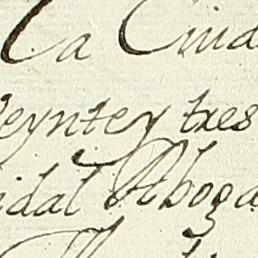 La Ciud
veyntey tres
idal Aboga